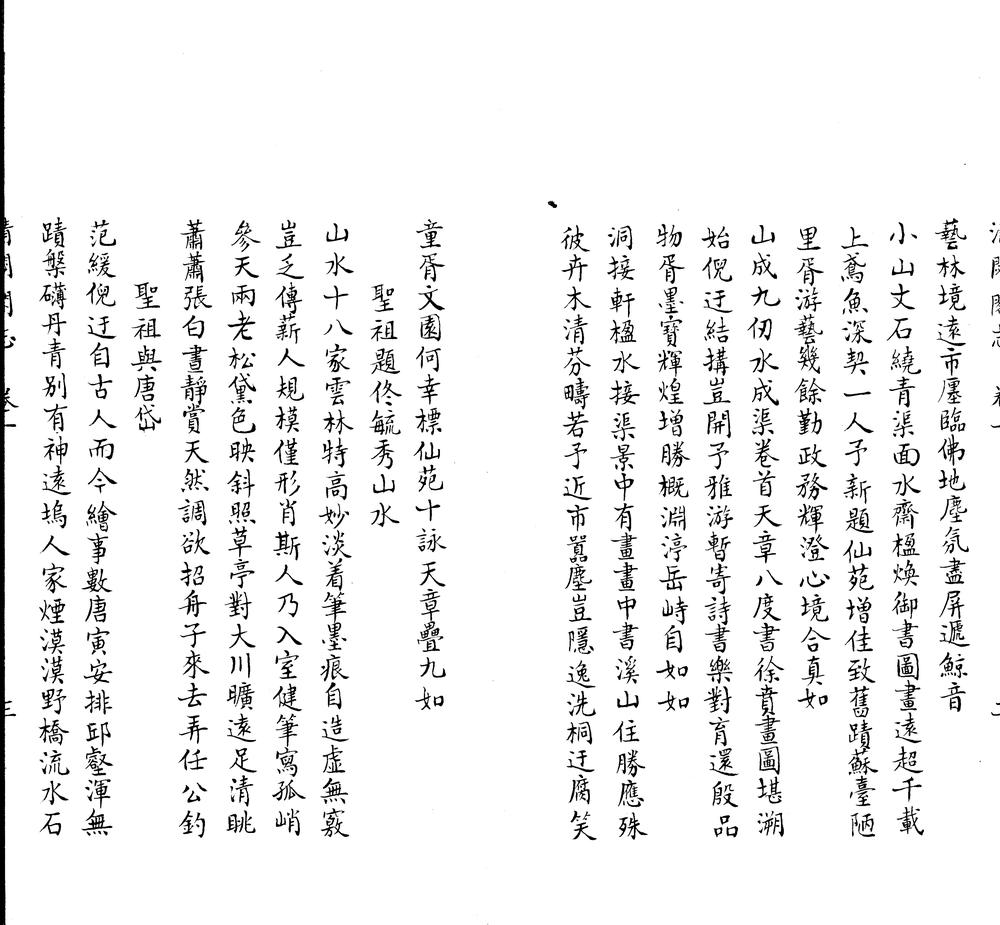 藝林境遠市廛臨佛地塵氛盡屏遞鯨音
小山丈石繞青渠面水齋楹煥御書圖畫遠超千載
上鳶魚深契一人予新題仙苑增佳致舊蹟蘇臺陋
里胥游藝幾餘勤政務輝澄心境合真如
山成九仞水成渠卷首天章八度書徐賁畫圖堪溯
始倪迂結搆豈開予雅游暫寄詩書樂對育還殷品
物胥墨寶輝煌增勝概淵渟岳峙自如如
洞接軒楹水接渠景中有畫畫中書溪山住勝應殊
彼卉木清芬疇若予近市囂塵豈隱逸洗桐迂腐笑
童胥文園何幸標仙苑十詠天章疊九如
聖祖題佟毓秀山水
山水十八家雲林特高妙淡着筆墨痕自造虛無竅
豈乏傳薪人規模僅形肖斯人乃入室健筆寫孤峭
參天兩老松黛色映斜照草亭對大川曠遠足清眺
蕭蕭張白晝靜賞天然調欲招舟子來去弄任公釣
聖祖與唐岱
范緩倪迂自古人而今繪事數唐寅安排邱壑渾無
蹟槃礴丹青別有神遠塢人家煙漠漠野橋流水石